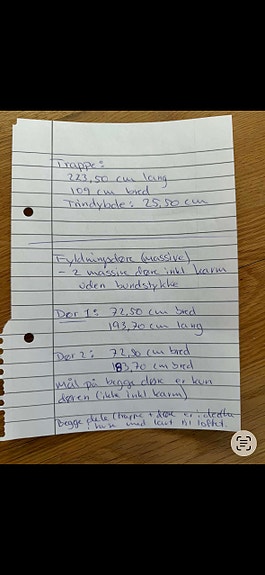 Trappe:
223,50 cm lang
109 cm bred
Trindybde: 25,50 cm
Fyldningsdøre (massive)
- 2 massive døre inkl karm
uden bundstykke
Dør 1: 72,50 cm bred
193,70 cm lang
Dør 2: 72,30 cm bred
183,70 cm bred
mål på begge døre er kun
døren (ikke inkl karm)
Begge dele (trappe + døre er i
huse med lavt til loftet.